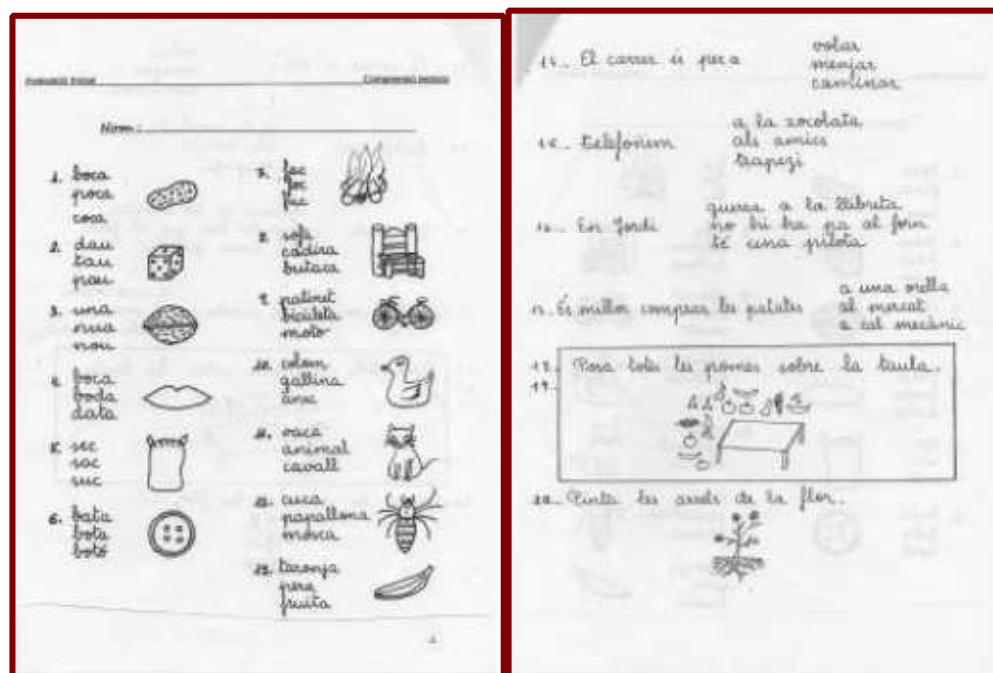 Nom:
1. boca
poca
coca
2. dau
tau
pau
3. una
nua
nou
4. boca
boda
data
5. sec
sac
suc
6. bata
bota
botó
7. fac
foc
fuc
8. sofà
cadira
butaca
9. patinet
bicicleta
moto
10. colom
gallina
ànec
11. vaca
animal
cavall
12. cuca
papallona
mosca
13. taronja
pera
fruita
14.- El carrer és per a
volar
menjar
caminar
15.- Telefonem
a la xocolata
als amics
trapezi
16.- En Jordi
guixa a la llibreta
no hi ha pa al forn
té una pilota
17.- És millor comprar les patates
a una orella
al mercat
a cal mecànic
18.- Posa totes les pomes sobre la taula.
19.-
20.- Pinta les arrels de la flor.